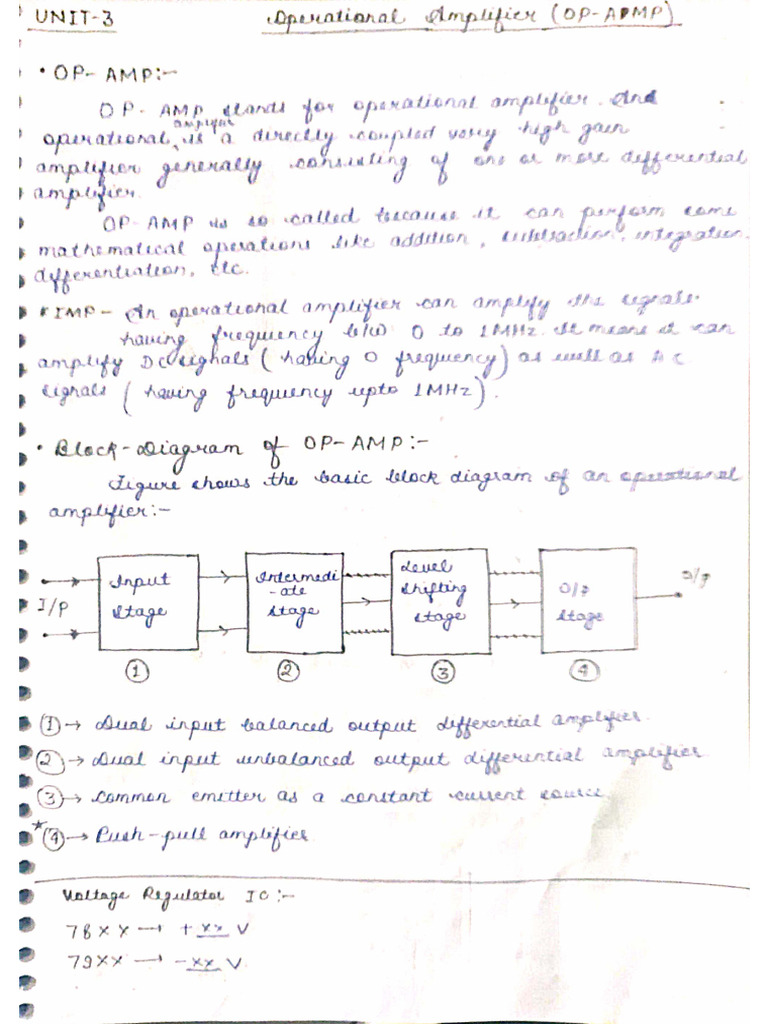 UNIT-3 Operational Amplifier (OP-AMP)
• OP-AMP:-
OP-AMP stands for operational amplifier. And
amplifier
operational is a directly coupled very high gain
amplifier generally consisting of one or more differential
amplifier.
OP-AMP is so called because it can perform some
mathematical operations like addition, subtraction, integration,
differentiation, etc.
* IMP- An operational amplifier can amplify the signals
having frequency b/w 0 to 1MHz. It means it can
amplify DC signals (having 0 frequency) as well as AC
signals (having frequency upto 1MHz).
• Block-Diagram of OP-AMP:-
Figure shows the basic block diagram of an operational
amplifier:-
I/P
Input
Stage
Intermedi
-ate
Stage
Level
Shifting
Stage
O/p
Stage
O/p
① ② ③ ④
① → Dual input balanced output differential amplifier.
② → Dual input unbalanced output differential amplifier
③ → Common emitter as a constant current source
* ④ → Push-pull amplifier
Voltage Regulator IC:-
78XX → + XX V
79XX → - XX V